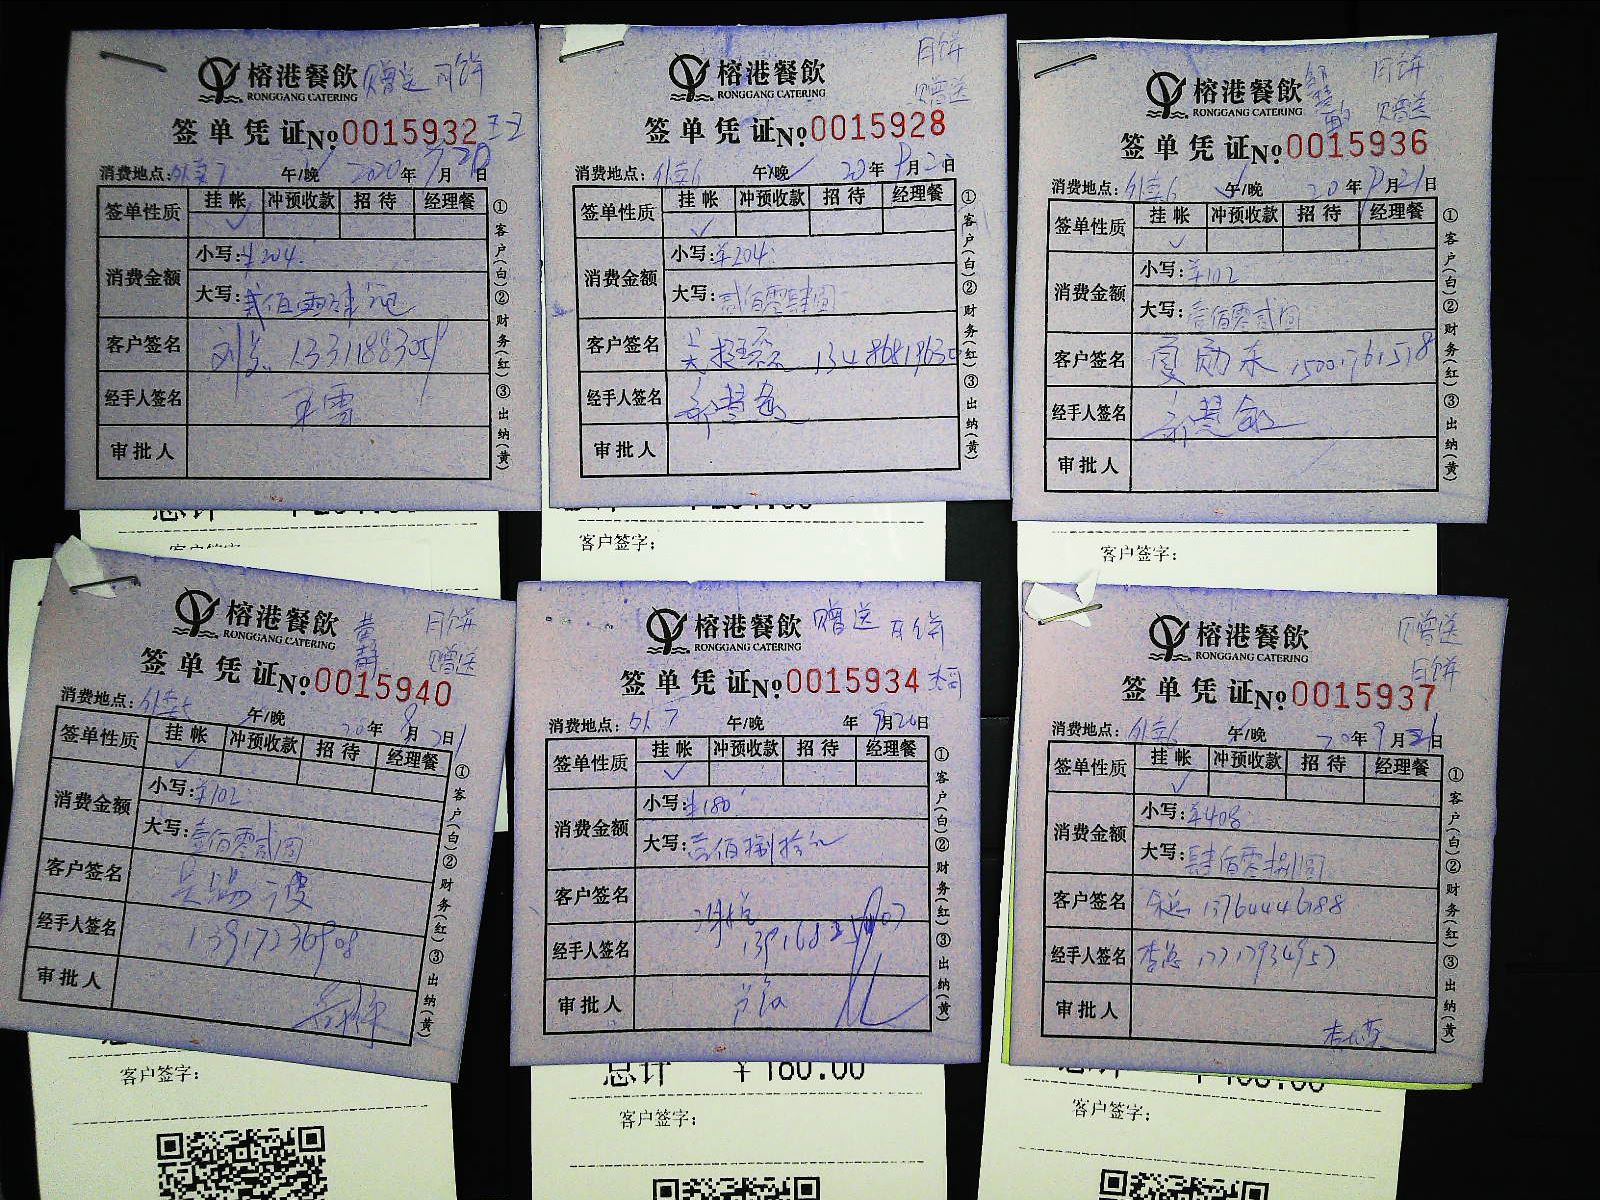 榕港餐飲 赠送 月饼
RONGGANG CATERING
签单凭证 No 0015932
消费地点: 外卖7 午/晚 2020年9月20日
签单性质 挂帐 冲预收款 招待 经理餐
✓
消费金额 小写: ¥204.
大写: 贰佰零肆元
客户签名
经手人签名
审批人
①客户(白)②财务(红)③出纳(黄)
总计
客户签字:
榕港餐飲 月饼
赠送
RONGGANG CATERING
签单凭证 No 0015928
消费地点: 外卖6 午/晚 20年9月2日
签单性质 挂帐 冲预收款 招待 经理餐
✓
消费金额 小写: ¥204.
大写: 贰佰零肆圆
客户签名
经手人签名
审批人
①客户(白)②财务(红)③出纳(黄)
客户签字:
榕港餐飲 月饼
赠送
RONGGANG CATERING
签单凭证 No 0015936
消费地点: 外卖6 午/晚 20年9月21日
签单性质 挂帐 冲预收款 招待 经理餐
✓
消费金额 小写: ¥102
大写: 壹佰零贰圆
客户签名
经手人签名
审批人
①客户(白)②财务(红)③出纳(黄)
客户签字:
榕港餐飲 黄静 月饼
赠送
RONGGANG CATERING
签单凭证 No 0015940
消费地点: 外卖 午/晚 20年8月21日
签单性质 挂帐 冲预收款 招待 经理餐
✓
消费金额 小写: ¥102
大写: 壹佰零贰圆
客户签名
经手人签名 13917236908
审批人
①客户(白)②财务(红)③出纳(黄)
客户签字:
榕港餐飲 赠送 月饼
RONGGANG CATERING
签单凭证 No 0015934
消费地点: 外7 午/晚 年9月20日
签单性质 挂帐 冲预收款 招待 经理餐
✓
消费金额 小写: ¥180
大写: 壹佰捌拾元
客户签名
经手人签名
审批人
①客户(白)②财务(红)③出纳(黄)
总计 ¥180.00
客户签字:
榕港餐飲 赠送
月饼
RONGGANG CATERING
签单凭证 No 0015937
消费地点: 外卖6 午/晚 20年9月21日
签单性质 挂帐 冲预收款 招待 经理餐
✓
消费金额 小写: ¥408
大写: 肆佰零捌圆
客户签名 13764446188
经手人签名 李总 17717934957
审批人
①客户(白)②财务(红)③出纳(黄)
客户签字: